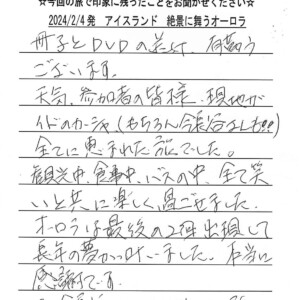 ☆今回の旅で印象に残ったことをお聞かせください☆
2024/2/4発 アイスランド 絶景に舞うオーロラ
冊子とDVDの送付 有難う
ございます。
天気、参加者の皆様、現地ガ
イドのカーシャ(もちろん今 さんも!!)
全てに恵まれた旅でした。
観光中、食事中、バスの中、全て笑
いと共に楽しく過ごせました。
オーロラは最後の2日出現して
長年の夢が叶いました。本当に
感謝です。